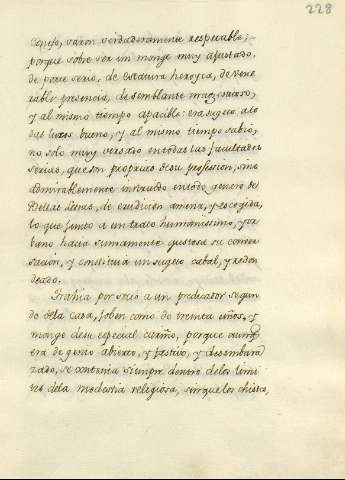 228
Conejo, varon verdaderamente respetable;
porque sobre ser un monge muy ajustado,
de porte serio, de estatura heroyca, de vene
rable presencia, de semblante magestuoso,
y al mismo tiempo apacible: era sugeto a to
das luzes bueno, y al mismo tiempo sabio,
no solo muy versado en todas las facultades
serias, que son proprias de su profession, sino
admirablemente instruido en todo genero de
Bellas Letras, de erudicion amena, y escogida,
lo que junto a un trato humanissimo, y ur
bano hacia sumamente gustosa su conver
sacion, y constituia un sugeto cabal, y redon
deado.
Trahia por socio a un predicador segun
do de la casa, joben como de treinta años, y
monge de su especial cariño, porque aunq
era de genio abierto, y festivo, y desembara
zado, se contenia siempre dentro de los limi
tes de la modestia religiosa, sin que los chistes,